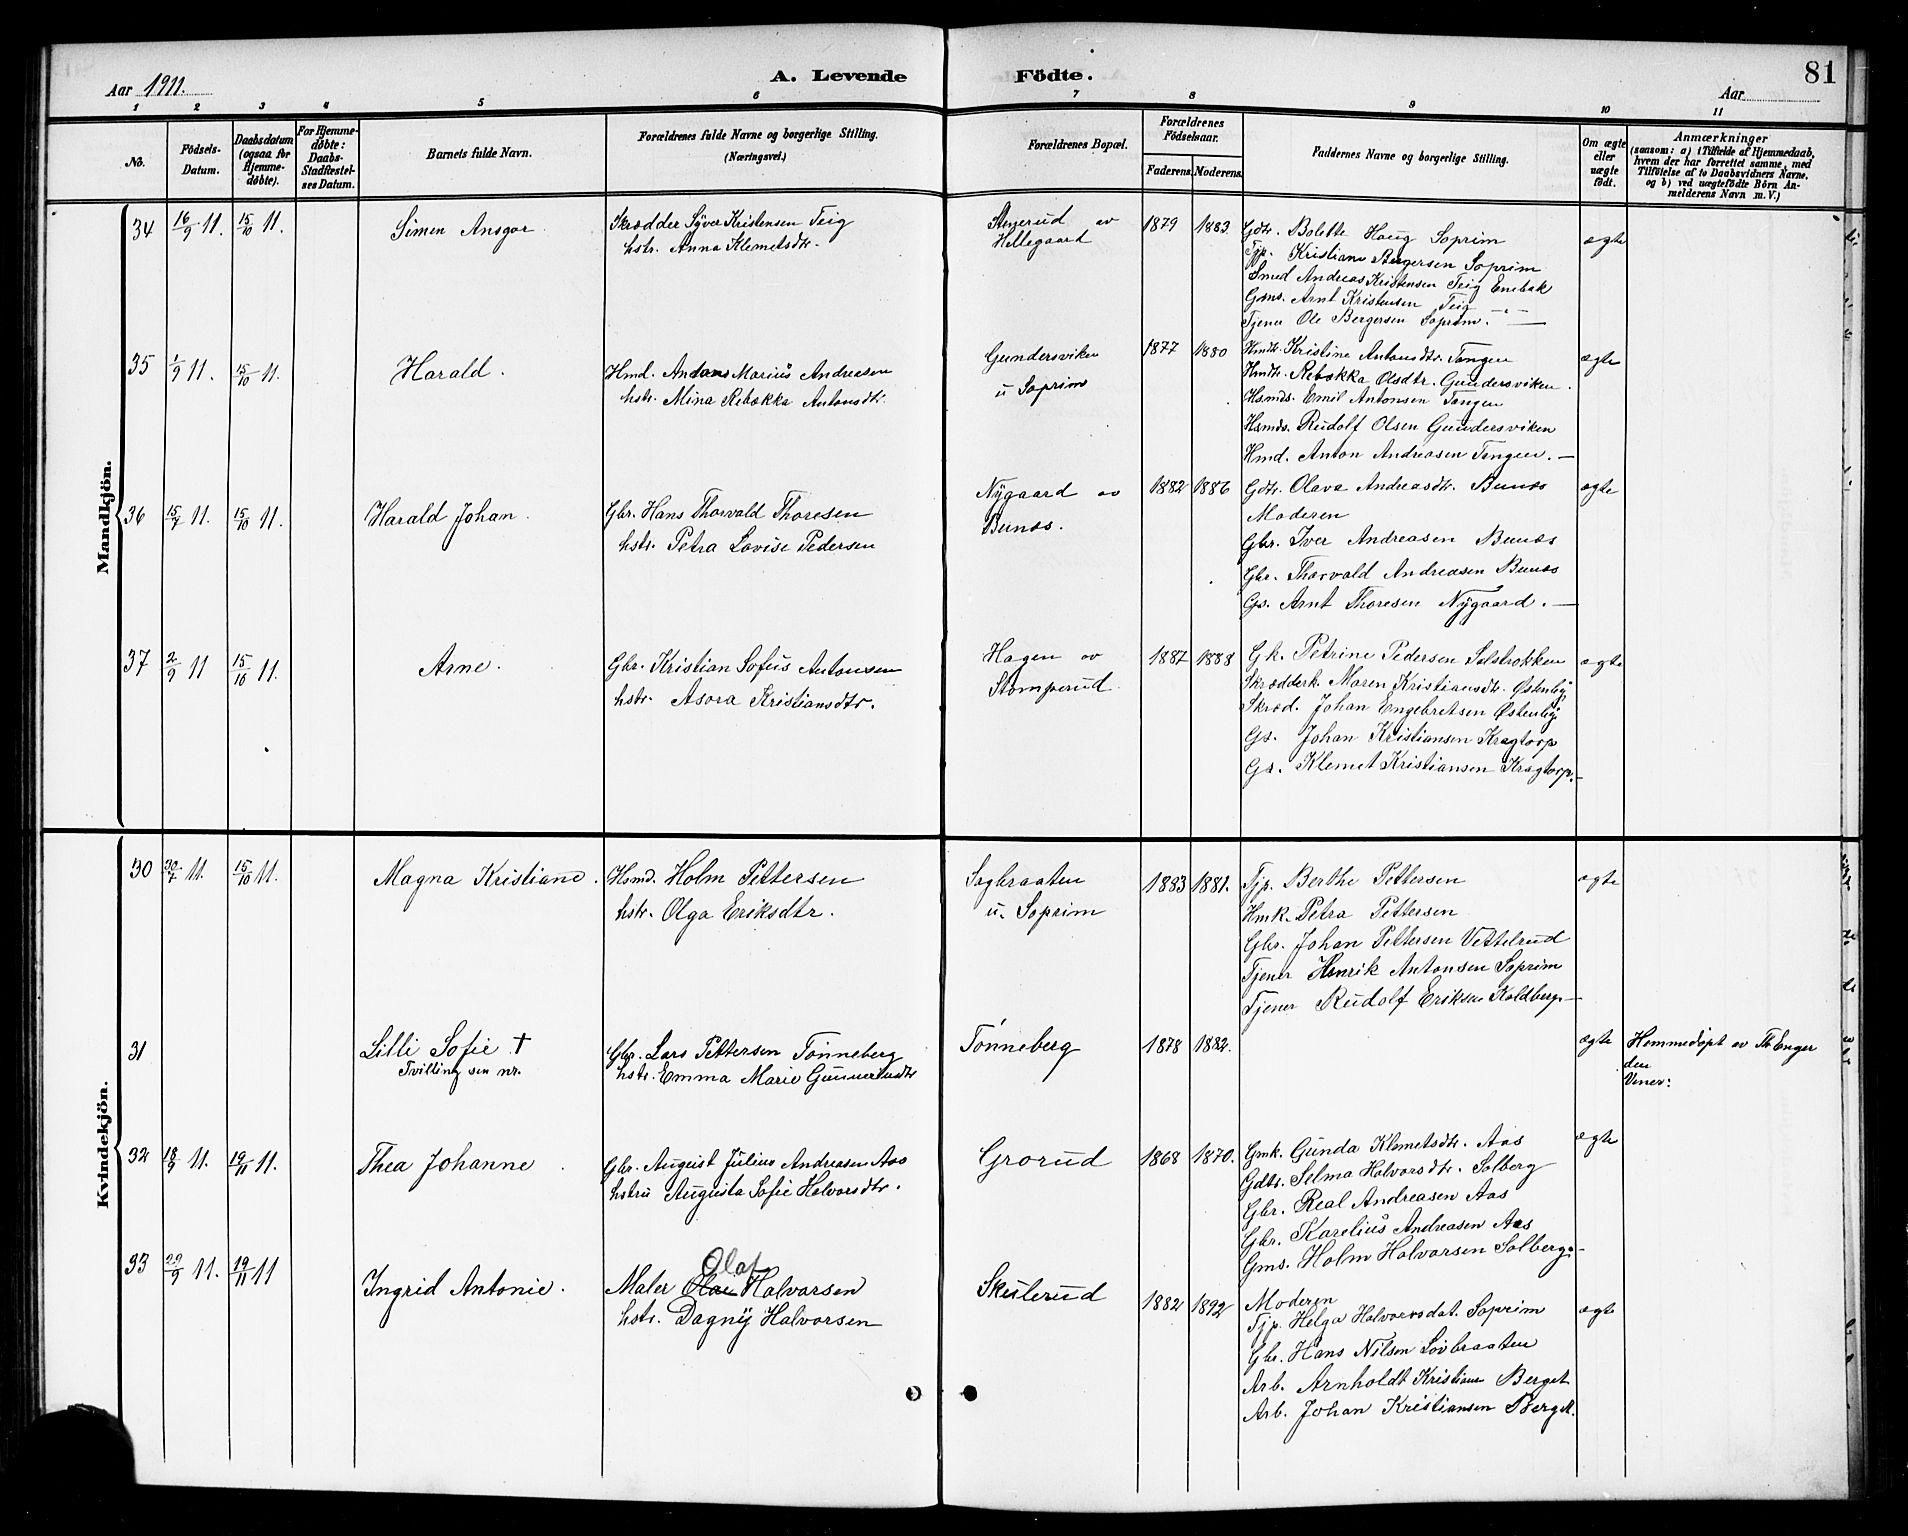 Aar 1911.
A. Levende Födte.
81
Aar
1 2 3 4 5 6 7 8 9 10 11
No.
Födsels-Datum.
Daabsdatum (ogsaa for Hjemme-døbte).
For Hjemme-døbte: Daabs-Stadfæstel-ses Datum.
Barnets fulde Navn.
Forældrenes fulde Navne og borgerlige Stilling.
(Næringsvei.)
Forældrenes Bopæl.
Forældrenes Fødselsaar.
Faderens. Moderens.
Faddernes Navne og borgerlige Stilling.
Om ægte eller uægte født.
Anmærkninger
(saasom: a) i Tilfælde af Hjemmedaab,
hvem der har forrettet samme, med
Tilføielse af to Daabsvidners Navne,
og b) ved uægtefødte Börn An-
melderens Navn m. V.)
Mandkjön.
34 16/9 11. 15/10 11. Simen Ansgar.
Skrædder Syver Kristensen Teig
hstr. Anna Klemetsdtr.
Stenerud av
Hellegaard
1879 1883.
Gdtr. Bolette Haug Soprim
Tjp. Kristiane Bergersen Soprim
Smed Andreas Kristensen Teig Enebak
Gms. Arnt Kristensen Teig
Tjener Ole Bergersen Soprim.
ægte
35 1/9 11. 15/10 11. Harald.
Hmd. Antans Marius Andreasen
hstr. Mina Rebækka Antonsdtr.
Gundersviken
u Soprim
1877 1880
Hmdtr. Kristine Antonsdtr. Tangen
Hmdtr. Rebækka Olsdtr. Gundersviken.
Hsmds. Emil Antonsen Tangen
Hsmds. Rudolf Olsen Gundersviken
Hmd. Anton Andreasen Tangen.
ægte
36 15/7 11. 15/10 11. Harald Johan.
Gbr. Hans Thorvald Thoresen
hstr. Petra Lovise Pedersen
Nygaard av
Bunæs.
1882 1886
Gdtr. Olava Andreasdtr. Bunæs
Moderen
Gbr. Iver Andreasen Bunæs
Gbr. Thorvald Andreasen Bunæs
Gs. Arnt Thoresen Nygaard.
ægte
37 2/9 11 15/10 11. Arne.
Gbr. Kristian Sofus Antonsen
hstr. Asora Kristiansdtr.
Hagen av
Stomperud.
1887 1888
Gk. Petrine Pedersen Solstrokken
Skrædderk. Maren Kristiansdtr. Østenby
Skræd. Johan Engebretsen Østenby
Gs. Johan Kristiansen Kragtorp
Gs. Klemet Kristiansen Kragtorp.
ægte
Kvindekjön.
30 30/7 11. 15/10 11. Magna Kristiane.
Hsmd. Holm Pettersen
hstr. Olga Eriksdtr.
Sagbraaten
u. Soprim
1883 1881.
Tjp. Berthe Pettersen
Hmk. Petra Pettersen
Gbr. Johan Pettersen Vettelrud
Tjener Henrik Antonsen Soprim
Tjener Rudolf Eriksen Koldberg
ægte
31 Lilli Sofie †
Tvilling sen nr.
Gbr. Lars Pettersen Tønneberg
hstr. Emma Marie Gunnerusdtr
Tønneberg
1878 1882.
ægte
Hemmedøpt av Th Enger
den
Vener:
32 18/9 11. 19/11 11. Thea Johanne.
Gbr. August Julius Andreasen Aas
hstru Augusta Sofie Halvorsdtr.
Grorud
1868 1870.
Gmk. Gunda Klemetsdtr. Aas
Gdtr. Selma Halvorsdtr. Solberg
Gbr. Real Andreasen Aas
Gbr. Karelius Andreasen Aas
Gms. Holm Halvorsen Solberg.
ægte
33 29/9 11. 19/11 11 Ingrid Antonie.
Olaf
Maler Olav Halvorsen
hstr. Dagny Halvorsen
Skulerud
1882 1892
Moderen
Tjp. Helga Halvorsdat. Soprim
Gbr. Hans Nilsen Løvbraaten
Arb. Arnholdt Kristians Berget
Arb. Johan Kristiansen Berget.
ægte